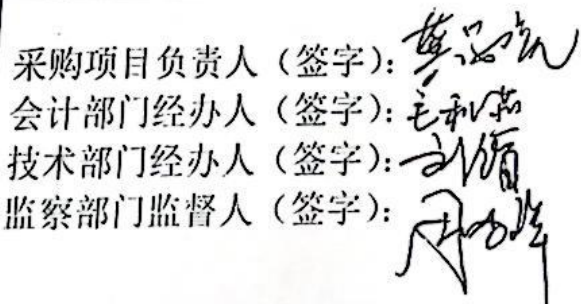 采购项目负责人（签字）：
会计部门经办人（签字）：毛利茹
技术部门经办人（签字）：刘绢
监察部门监督人（签字）：